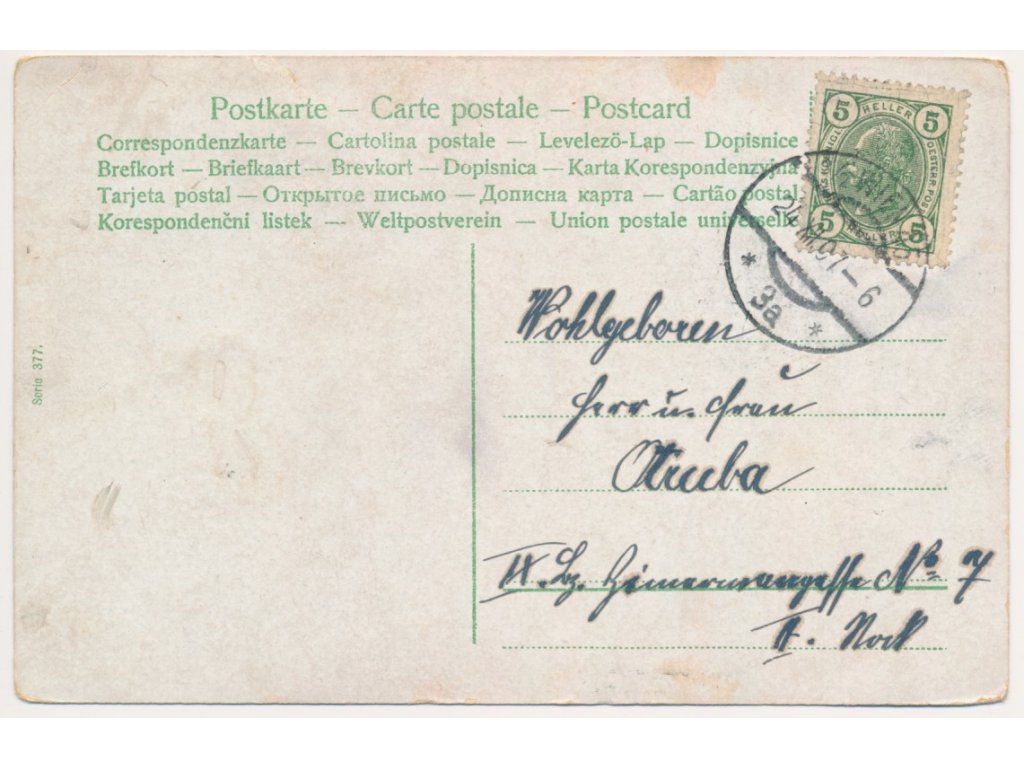 Postkarte – Carte postale – Postcard
Correspondenzkarte – Cartolina postale – Levelező-Lap – Dopisnice
Brefkort – Briefkaart – Brevkort – Dopisnica – Karta Korespondenzyjna
Tarjeta postal – Открытое письмо – Дописна карта – Cartão postal
Korespondenčni listek – Weltpostverein – Union postale universelle
5 HELLER 5
5 HELLER 5
07–6
* 3a *
Serie 377.
Wohlgeboren
Herr u. Frau
Otruba
IX. Bz. Zimermangasse No 7
II. Stock